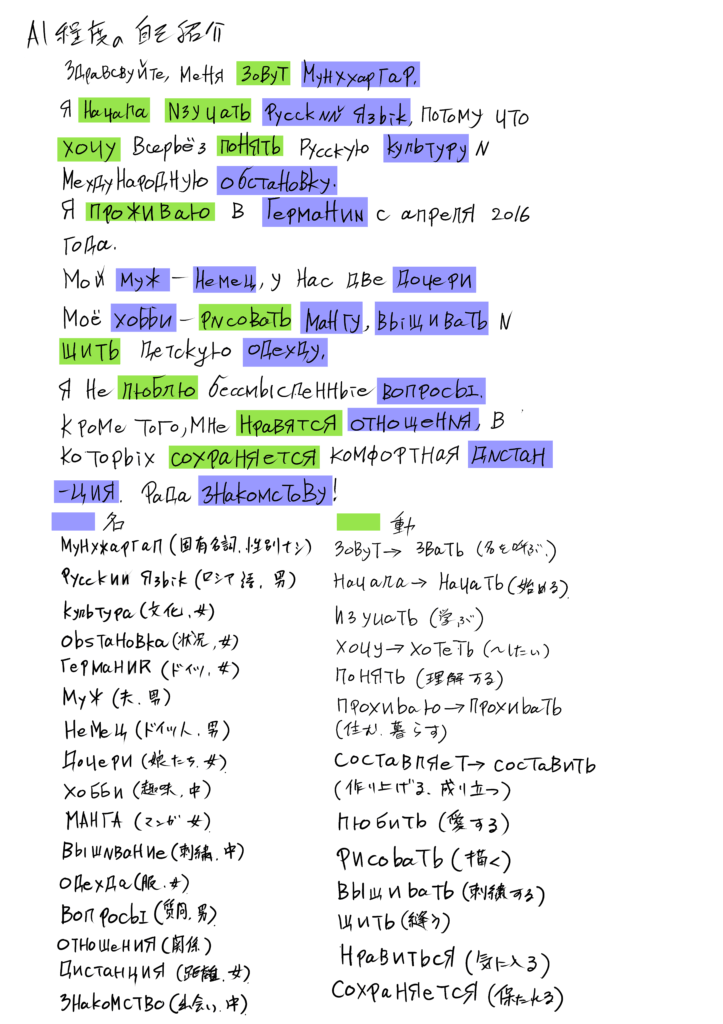 A1程度の自己紹介
Здравсвуйте, меня зовут Мунххаргар.
Я начала изучать Русский язьік, потому что
хочу всерьёз понять Русскую культуру и
мехдународную обстановку.
Я проживаю в Германии с апреля 2016
года.
Мой муж – немец, у нас две дочери
Моё хобби – рисовать мангу, вышивать и
шить детскую одехду.
Я не люблю бессмысленные вопросы.
Кроме того, мне нравятся отношения, в
которых сохраняется комфортная дистан
-ция. Рада знакомстову!
名
動
Мунхжаргал (固有名詞、性別ナシ)
Русский язьік (ロシア語、男)
Культура (文化、女)
Obsтановка (状況、女)
Германия (ドイツ、女)
Муж (夫、男)
Немец (ドイツ人、男)
Дочери (娘たち、女)
Хобби (趣味、中)
МАНГА (マンガ 女)
Вышивание (刺繍、中)
Одехда (服、女)
Вопросы (質問、男)
Отношения (関係)
Дистанция (距離、女)
Знакомство (出会い、中)
Зовут→ звать (名を呼ぶ、)
Начала→ Начать (始める)
Изучать (学ぶ)
Хочу→ хотеть (〜したい)
Понять (理解する)
Прохиваю→прохивать
(住む、暮らす)
Составляет→ составить
(作り上げる、成り立つ)
Любить (愛する)
Рисовать (描く)
Вышивать (刺繍する)
Шить (縫う)
Нравиться (気に入る)
Сохраняется (保たれる)